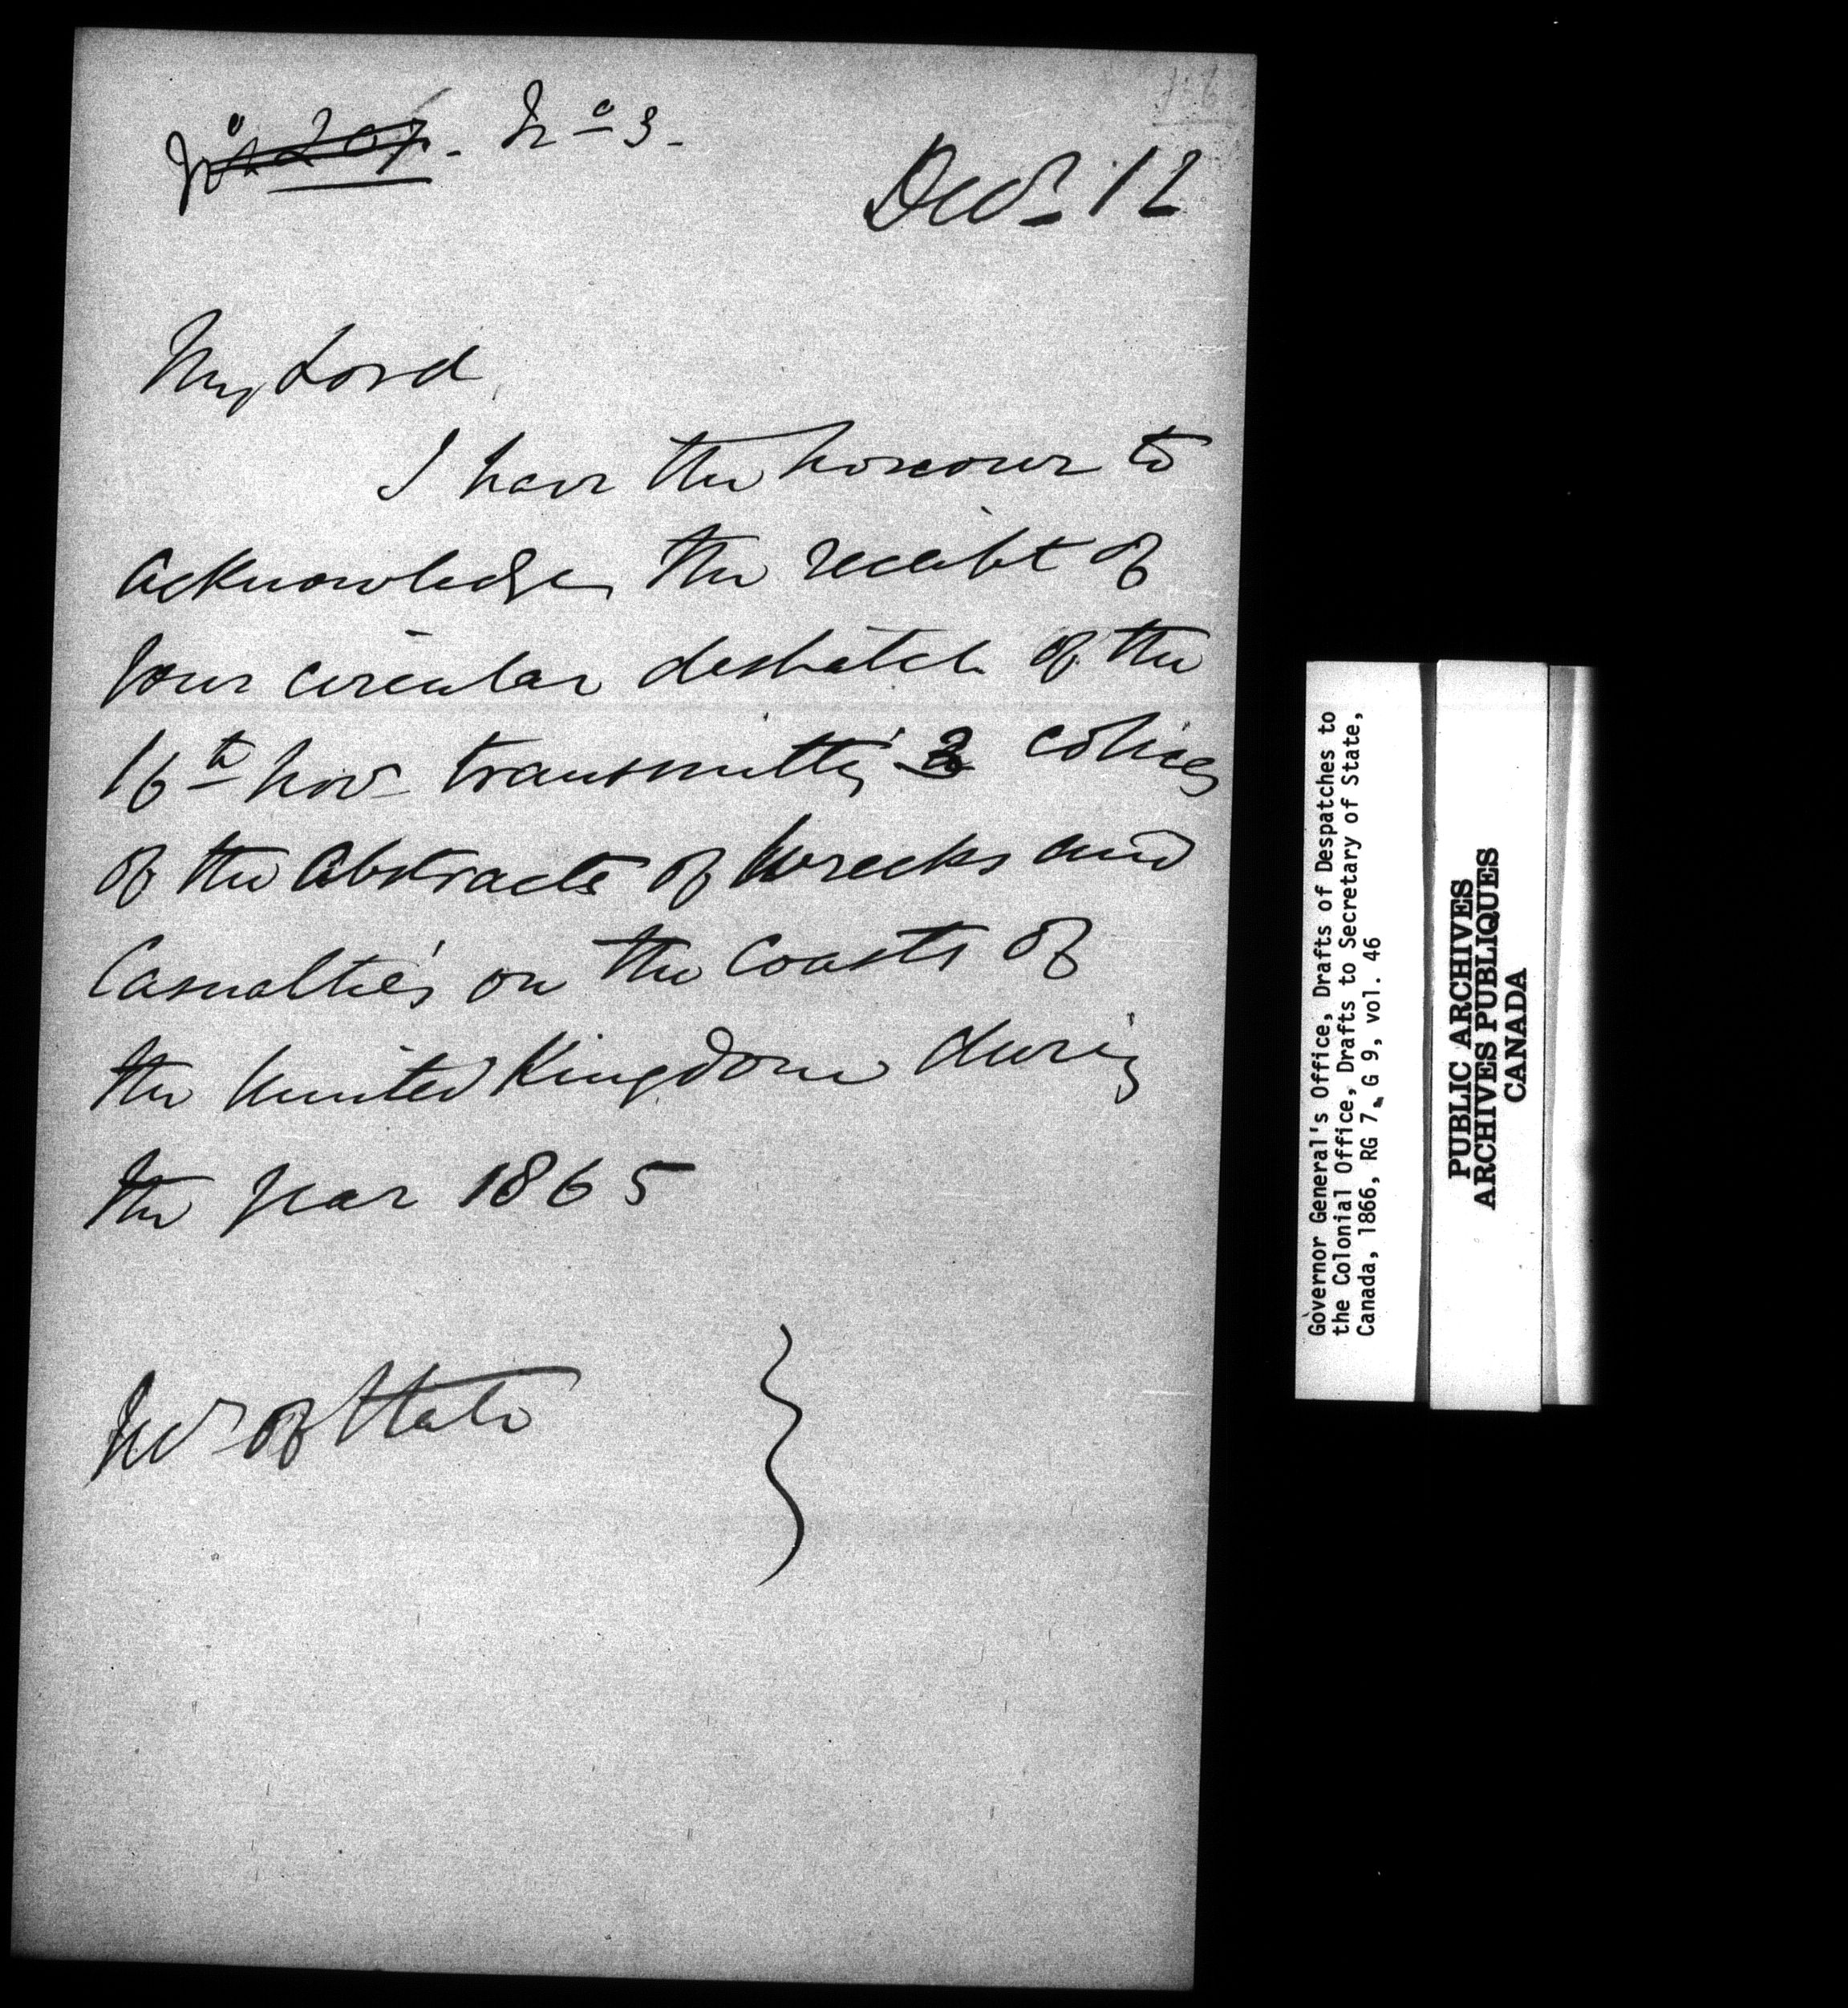 No 207. No 3.
Decr 12
My Lord,
I have the honour to
acknowledge the receipt of
your circular despatch of the
16th Nov transmittg 2 copies
of the Abstracts of Wrecks and
Casualties on the Coasts of
the United Kingdom during
the year 1865
Secr of State
Governor General's Office, Drafts of Despatches to
the Colonial Office, Drafts to Secretary of State,
Canada, 1866, RG 7, G 9, vol. 46
PUBLIC ARCHIVES
ARCHIVES PUBLIQUES
CANADA